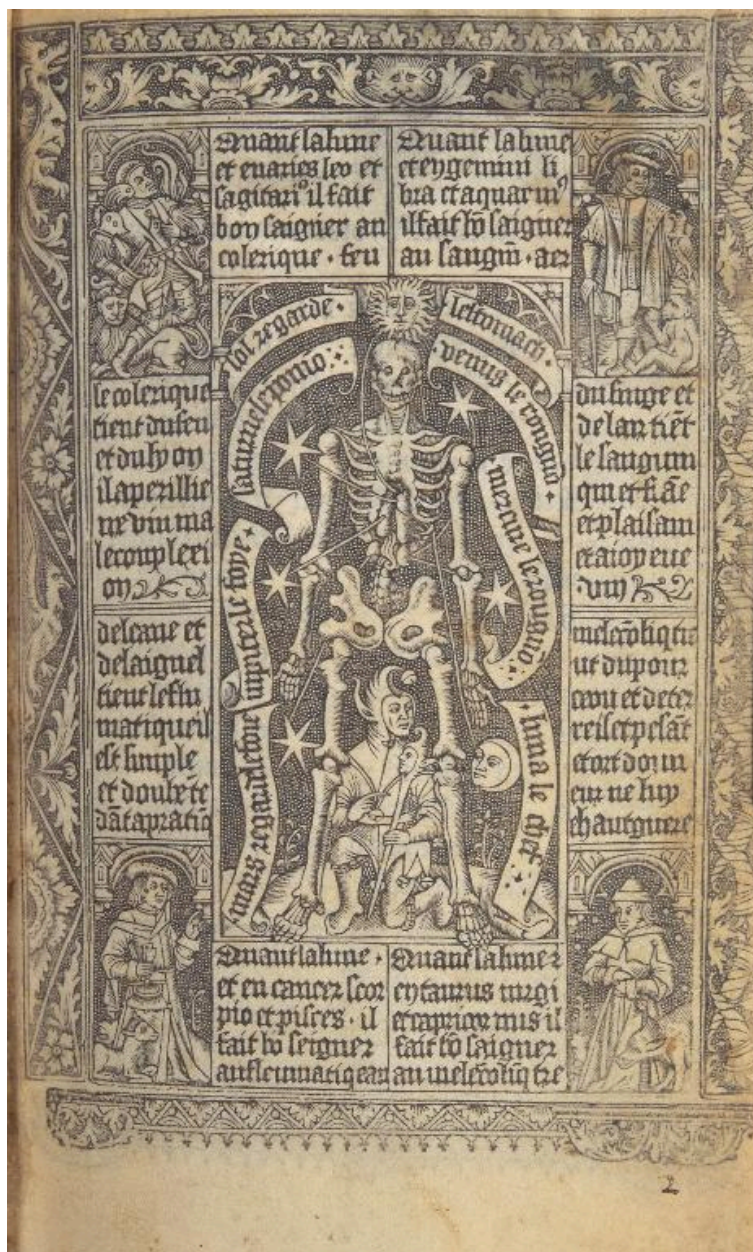 Quant la lune
et en aries leo et
sagitariꝰ il fait
bon saigner au
colerique · feu
Quant la lune
et en gemini li
bra et aquariꝰ
il fait bō saigner
au sanguī · aer
sol regarde ·
lestomach ·
saturne le pomō
venus le rongnō ·
mercure le rongnō
iupiter le foye ·
mars regarde le foie
luna le chef
le colerique
tient du feu
et du lyon
il a perillie
ne vin ma
le complexi
on
du singe et
de lair tiēt
le sanguin
qui et frāc
et plaisant
et a ioyeue
vin
de leaue et
de laignel
tient le fleu
matique il
est simple
et doulx te
dāt a pratiq
melēcoliq ti
ent du pour
ceau et de ter
re il set pesāt
et ort donn
eur ne luy
chaut guere
Quant la lune ·
et en cancer scor
pio et pisces · il
fait bō seigner
au fleumatiq eau
Quant la lune
en taurus virgi
et capricornus il
fait bō saigner
au melēcoliq tre
2